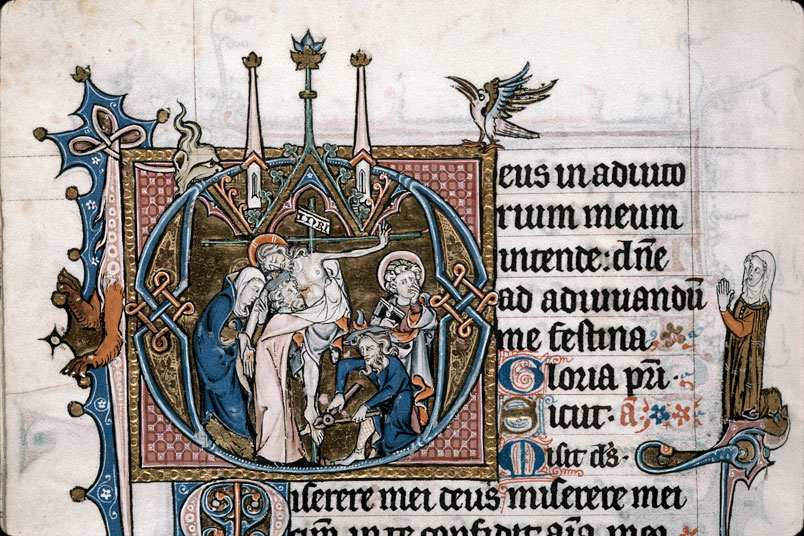 INRI
Deus in adiuto
rium meum
intende: dn̄e
ad adiuuandū
me festina
Gloria pr̄i
Sicut. a
Dixit dn̄s.
Miserere mei deus miserere mei
in te confidit aīa mea